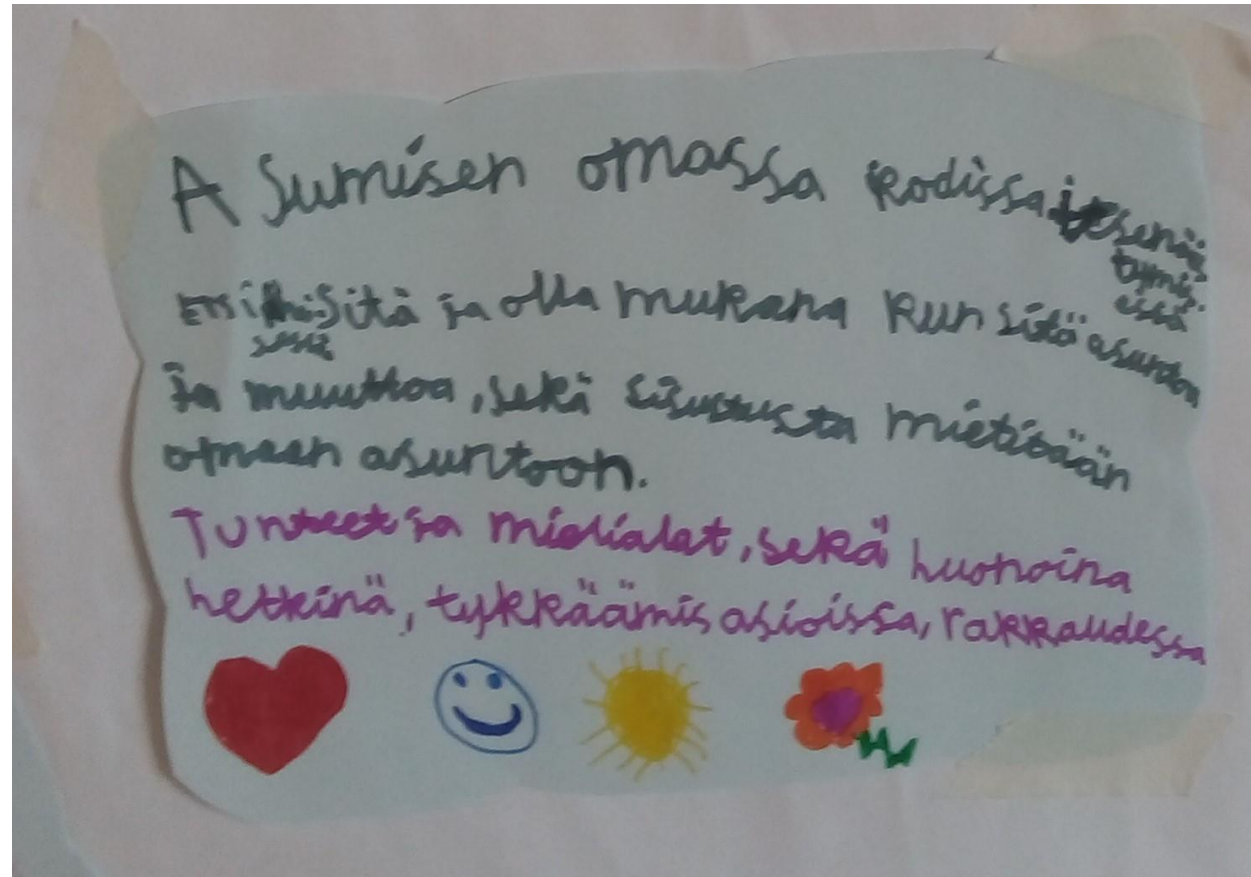 Asumisen omassa kodissa itsenäistymisessä
ensi sitä ja olla mukana kun sitä asunton
ja muuttoa, sekä sisustusta mietitään
omaan asuntoon.
Tunteet ja mielialat, sekä huonoina
hetkinä, tykkäämis asioissa, rakkaudessa